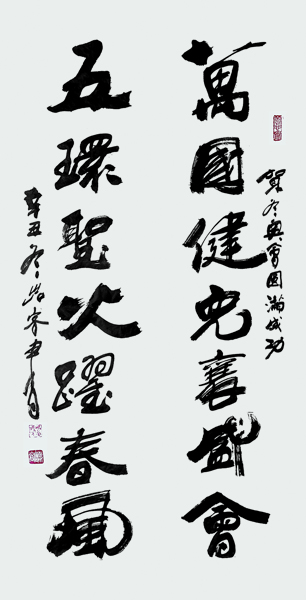 賀冬奥會圓滿成功
萬國健兒襄盛會
五環聖火躍春風
辛丑冬